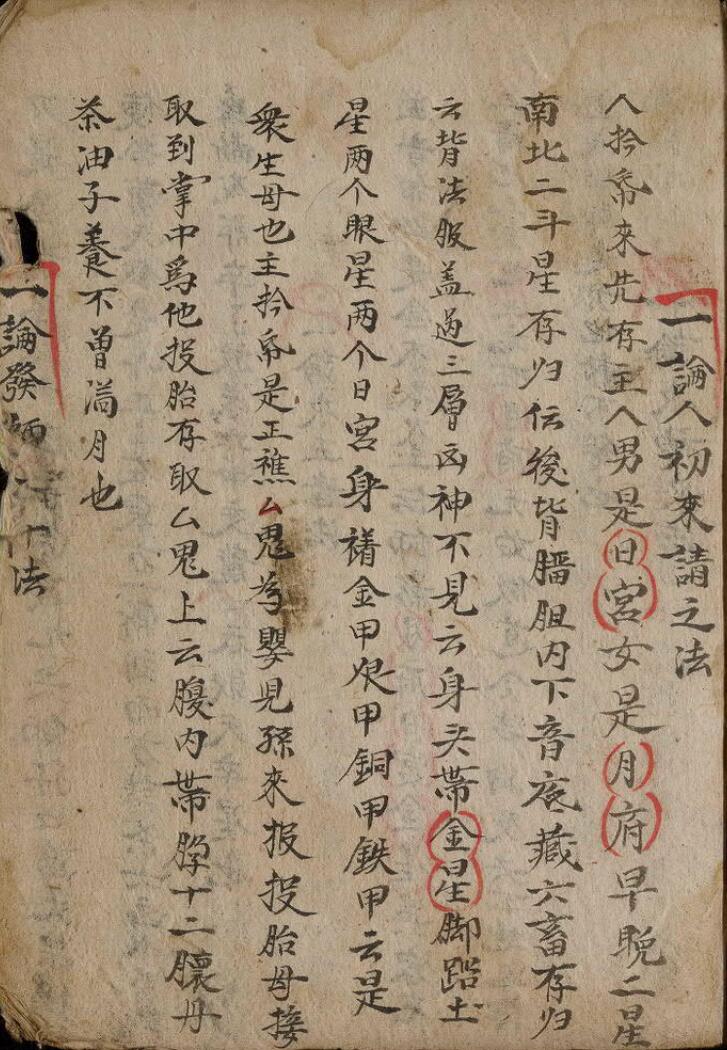 一論人初來請之法
人拎帋來先存主人男是日宮女是月府早晚二星
南北二斗星存归伝後背膓胆内下音底藏六畜存归
云背法服盖過三層凶神不見云身头帯金星脚踏土
星两个眼星两个日宮身禙金甲艮甲銅甲鉄甲云是
衆生母也主拎帋是王襍厶鬼为嬰児孫來报投胎母接
取到掌中為他投胎存取厶鬼上云腹内帯十二月
茶油子養不曾満月也
一論發師法